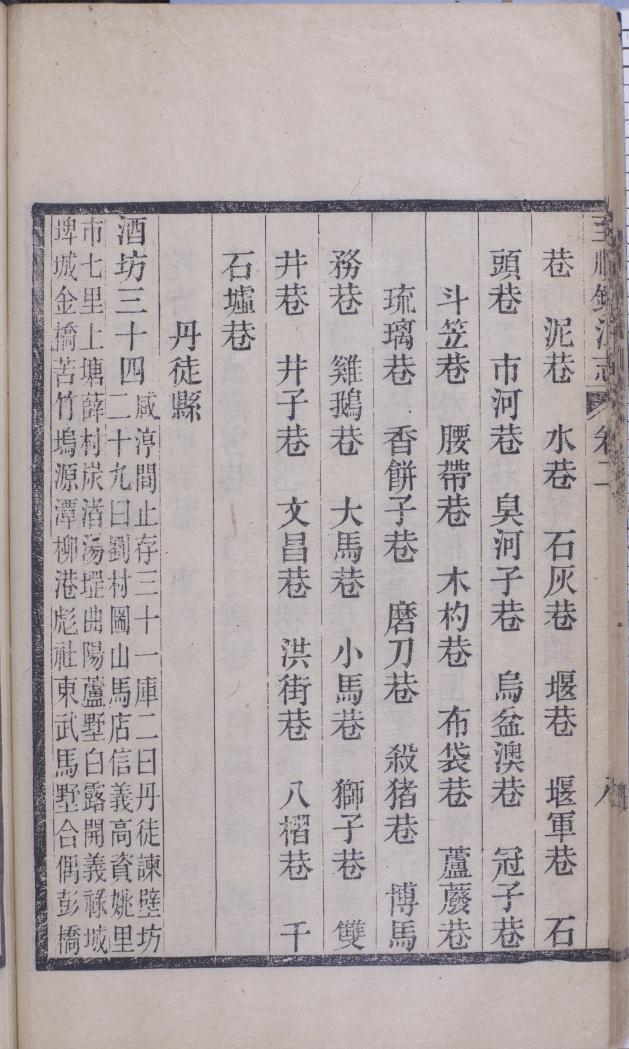 至順鎮江志 卷二 八
巷 泥巷 水巷 石灰巷 堰巷 堰軍巷 石
頭巷 市河巷 臭河子巷 烏盆澳巷 冠子巷
斗笠巷 腰帶巷 木杓巷 布袋巷 蘆蕟巷
琉璃巷 香餅子巷 磨刀巷 殺猪巷 博馬
務巷 雞鵝巷 大馬巷 小馬巷 獅子巷 雙
井巷 井子巷 文昌巷 洪街巷 八褶巷 千
石墟巷
丹徒縣
酒坊三十四
咸淳間止存三十一庫二曰丹徒諫壁坊
二十九曰劉村圌山馬店信義高資姚里
市七里上塘薛村炭渚湯埕曲陽蘆墅白露開義祿城
埤城金橋苦竹塢源潭柳港彪社東武馬墅合偶彭橋